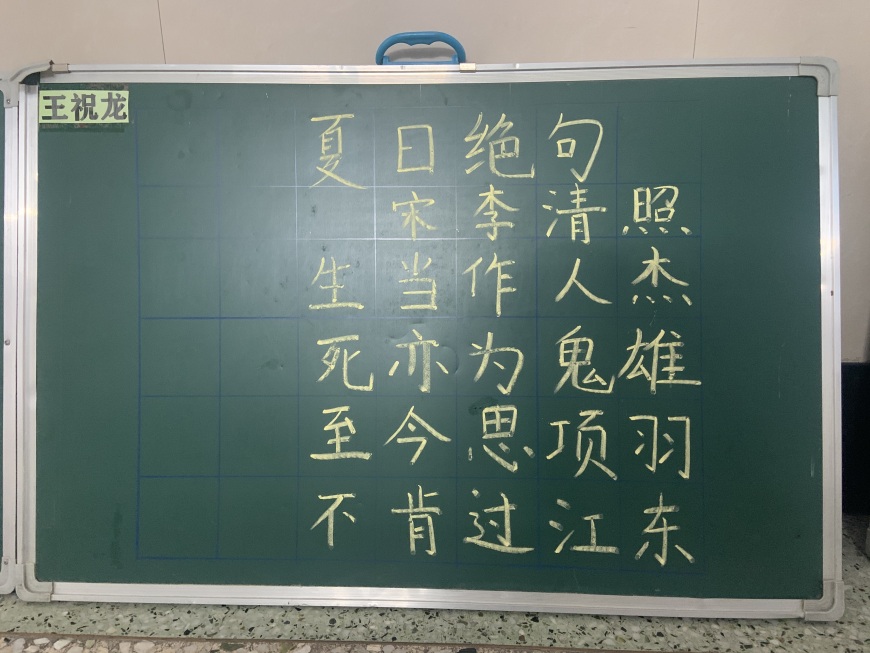 王祝龙
夏日绝句
宋李清照
生当作人杰
死亦为鬼雄
至今思项羽
不肯过江东